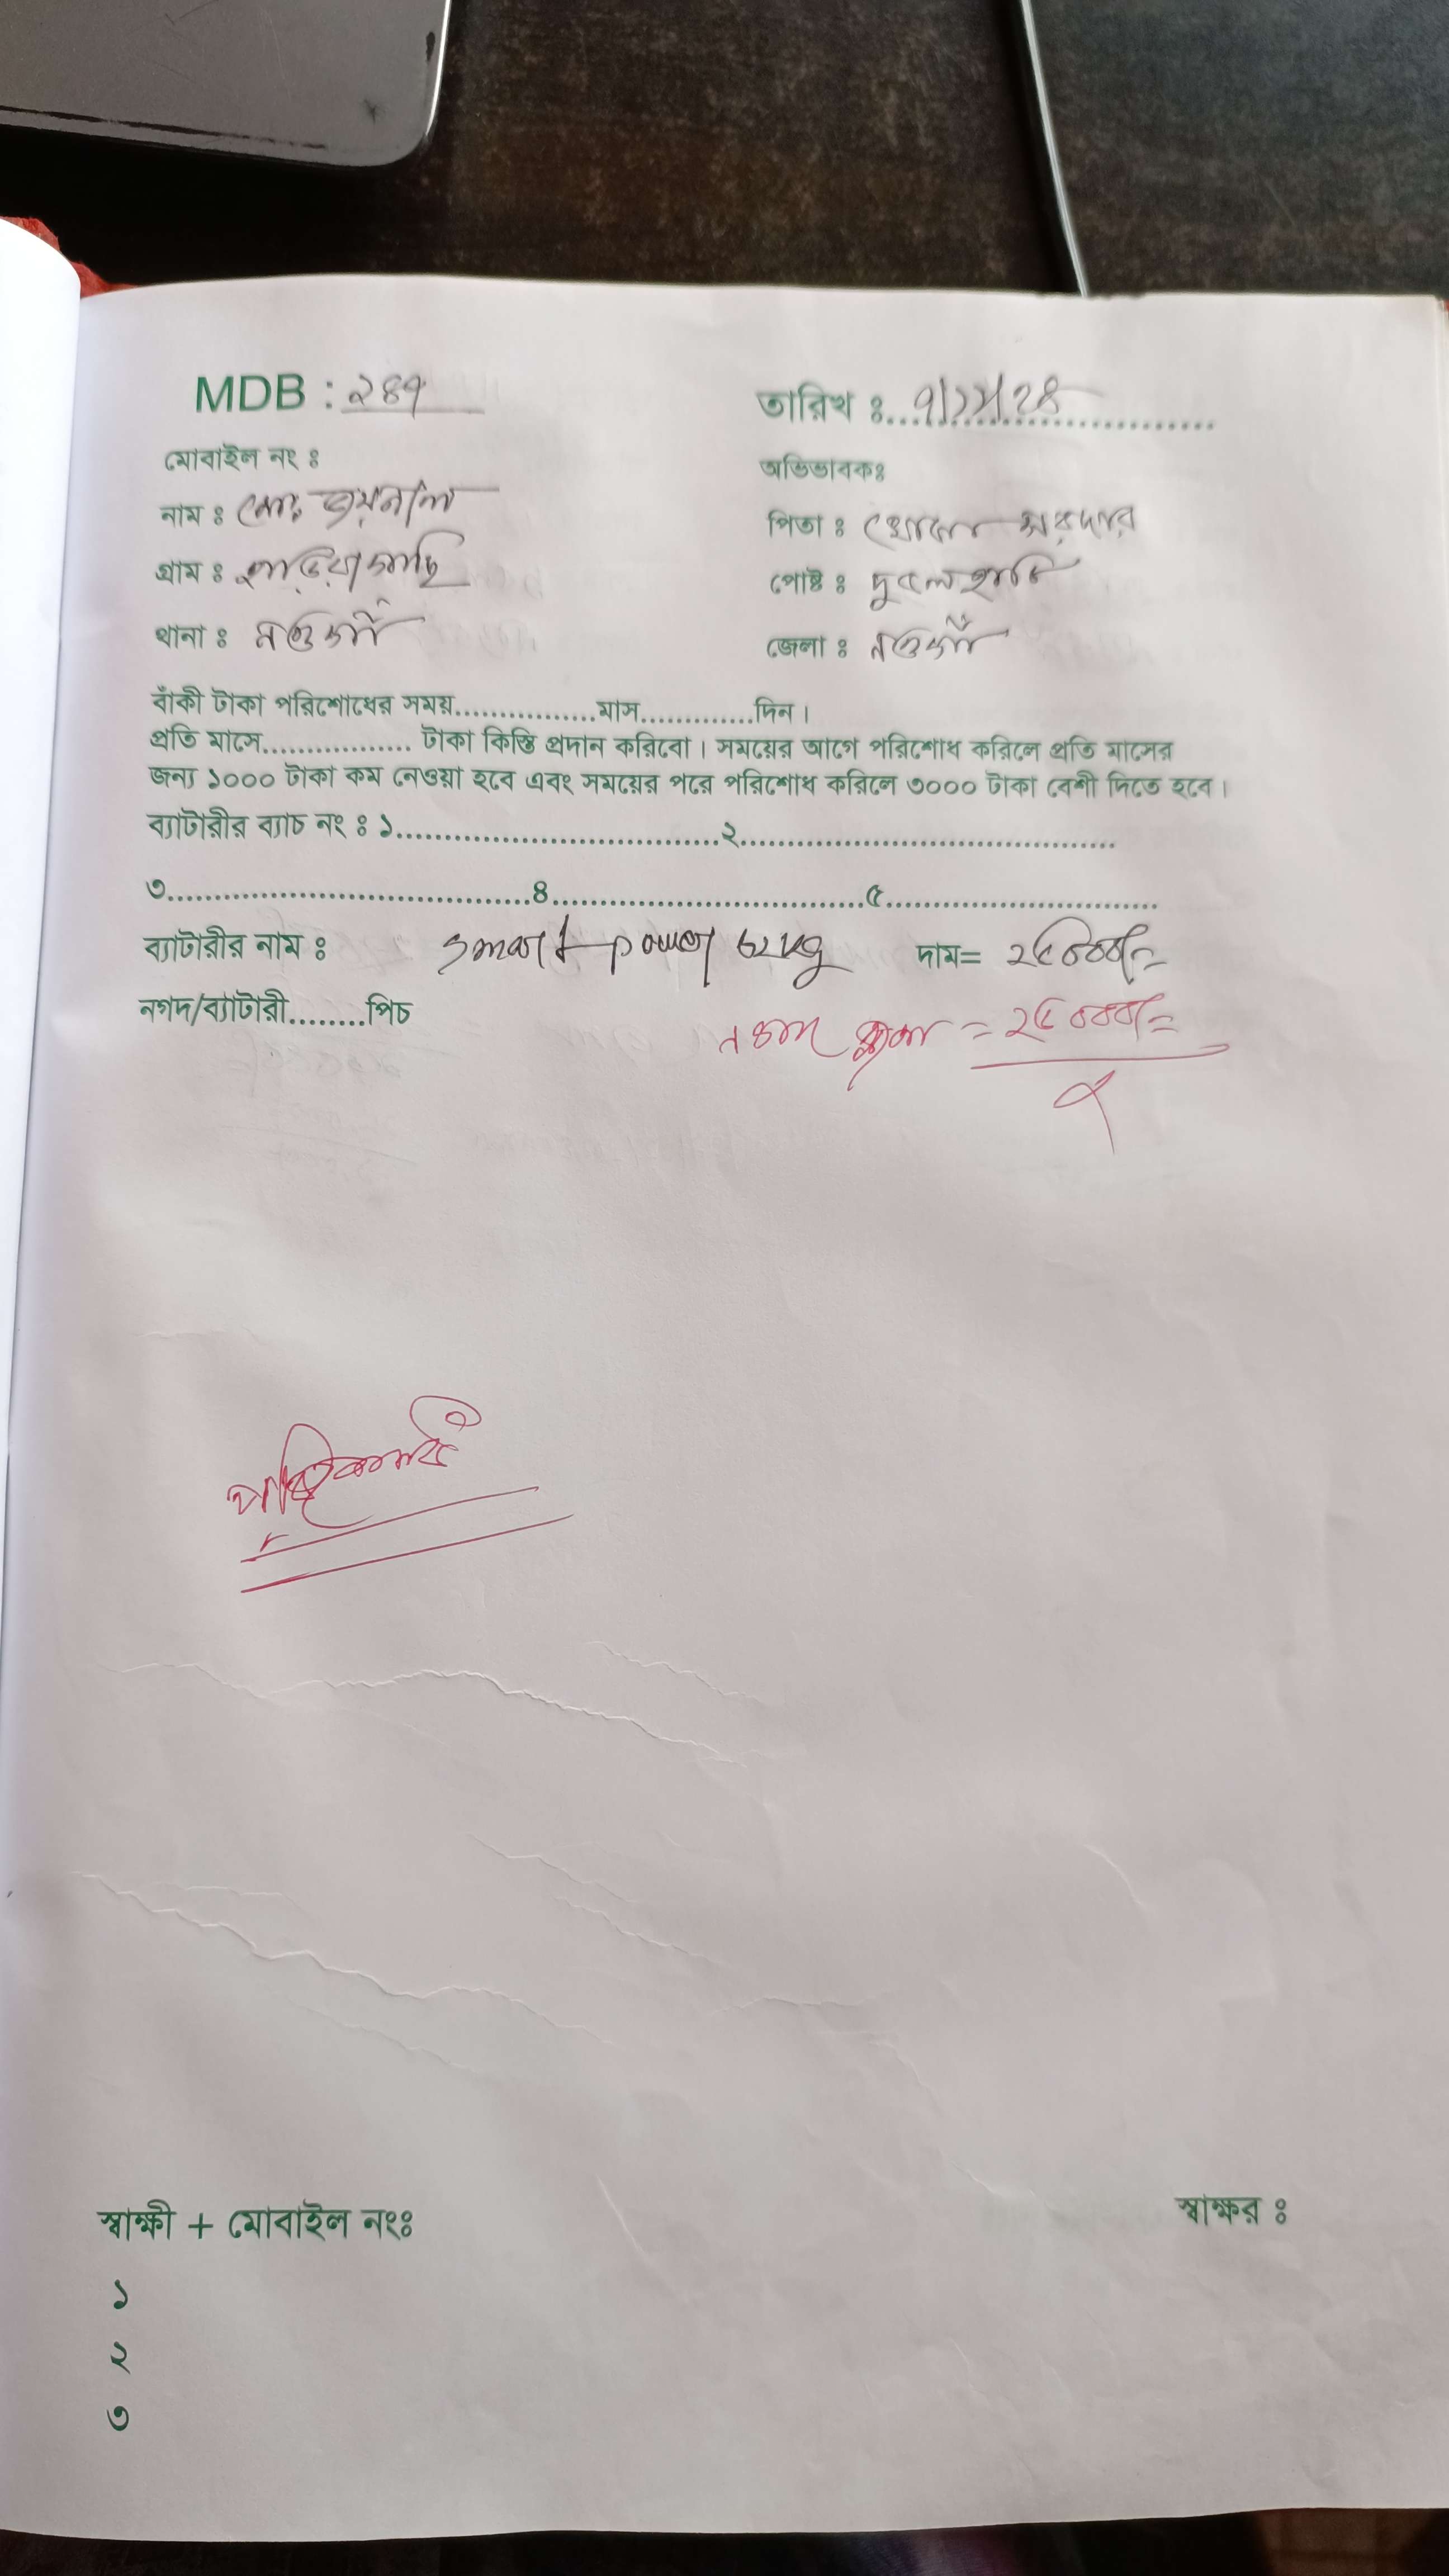 MDB : ২৪৭ তারিখ ঃ ৭/১২/২৪
মোবাইল নং ঃ অভিভাবকঃ
নাম ঃ মোঃ জয়নাল পিতা ঃ খোকা সরদার
গ্রাম ঃ হাড়িয়াগাছি পোষ্ট ঃ দুবলহাটি
থানা ঃ নওগাঁ জেলা ঃ নওগাঁ
বাঁকী টাকা পরিশোধের সময়................মাস.............দিন।
প্রতি মাসে................. টাকা কিস্তি প্রদান করিবো। সময়ের আগে পরিশোধ করিলে প্রতি মাসের
জন্য ১০০০ টাকা কম নেওয়া হবে এবং সময়ের পরে পরিশোধ করিলে ৩০০০ টাকা বেশী দিতে হবে।
ব্যাটারীর ব্যাচ নং ঃ ১....................................২..........................................
৩.........................................৪...................................৫...............................
ব্যাটারীর নাম ঃ Smart power 62kg দাম= ২৫০০০/=
নগদ/ব্যাটারী.........পিচ
নগদ জমা = ২৫০০০/=
পরিশোধ
স্বাক্ষী + মোবাইল নংঃ স্বাক্ষর ঃ
১
২
৩